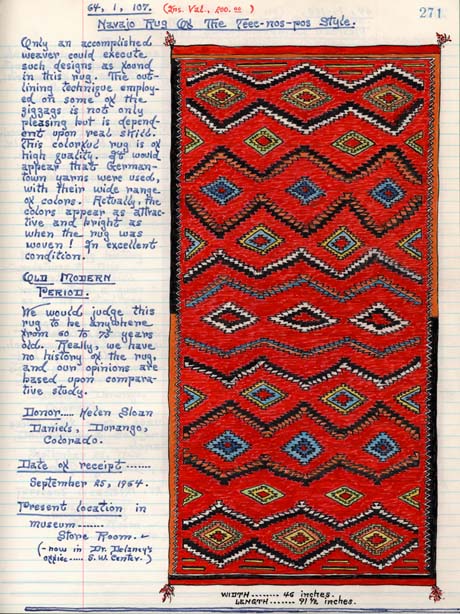 64, 1, 107. (Ins. Val., 200.00)
271
Navajo Rug Of The Teec-nos-pos Style.
Only an accomplished
weaver could execute
such designs as found
in this rug. The out-
lining technique employ-
ed on some of the
zigzags is not only
pleasing but is depend-
ent upon real skill.
This colorful rug is of
high quality. It would
appear that German-
town yarns were used,
with their wide range
of colors. Actually, the
colors appear as attrac-
tive and bright as
when the rug was
woven! In excellent
condition.
Old Modern
Period.
We would judge this
rug to be anywhere
from 60 to 75 years
old. Really, we have
no history of the rug,
and our opinions are
based upon compara-
tive study.
Donor..... Helen Sloan
Daniels, Durango,
Colorado.
Date of receipt.......
September 25, 1964.
Present location in
museum.......
Store Room.
(- now in Dr. Delaney's
office.... S.W. Center.)
WIDTH ........ 46 inches.
LENGTH ....... 91 1/2 inches.